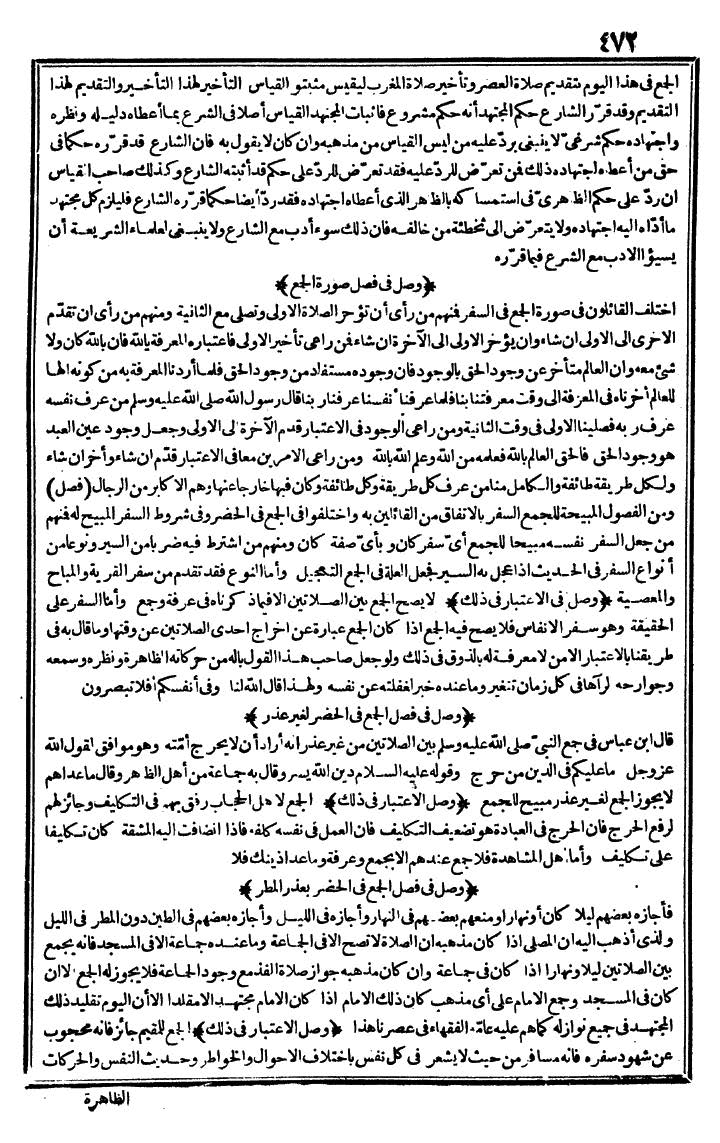 ٤٧٢
الجمع فى هذا اليوم بتقديم صلاة العصر وتأخير صلاة المغرب ليقيس مثبتو القياس التأخير لهذا التأخير والتقديم لهذا
التقديم وقد قرّر الشارع حكم المجتهد أنه حكم مشروع فاثبات المجتهد القياس أصلا فى الشرع بما أعطاه دليله ونظره
واجتهاده حكم شرعىّ لا ينبغى يردّ عليه من ليس القياس من مذهبه وان كان لا يقول به فان الشارع قد قرّره حكما فى
حق من أعطاه اجتهاده ذلك فمن تعرّض للردّ عليه فقد تعرّض للردّ على حكم قد أثبته الشارع وكذلك صاحب القياس
ان ردّ على حكم الظاهرىّ فى استمساكه بالظاهر الذى أعطاه اجتهاده فقد ردّ أيضا حكما قرّره الشارع فليلزم كل مجتهد
ما أدّاه اليه اجتهاده ولا يتعرّض الى تخطئة من خالفه فان ذلك سوء أدب مع الشارع ولا ينبغى لعلماء الشريعة أن
يسيؤا الادب مع الشرع فيما قرّره
﴿وصل فى فصل صورة الجمع﴾
اختلف القائلون فى صورة الجمع فى السفر فمنهم من رأى أن تؤخر الصلاة الاولى وتصلى مع الثانية ومنهم من رأى ان تقدّم
الاخرى الى الاولى ان شاء وان يؤخر الاولى الى الآخرة ان شاء فمن راعى تأخير الاولى فاعتباره المعرفة بالله فان بالله كان ولا
شئ معه وان العالم متأخر عن وجود الحق بالوجود فان وجوده مستفاد من وجود الحق فلما أردنا المعرفة به من كونه الها
للعالم أخرناه فى المعرفة الى وقت معرفتنا بنا فلما عرفنا أنفسنا عرفنا ربنا قال رسول الله صلى الله عليه وسلم من عرف نفسه
عرف ربه فصلينا الاولى فى وقت الثانية ومن راعى الوجود فى الاعتبار قدم الآخرة الى الاولى وجعل وجود عين العبد
هو وجود الحق فالحق العالم بالله فعلمه من الله وعلم الله بالله ومن راعى الامرين معا فى الاعتبار قدّم ان شاء وأخر ان شاء
ولكل طريقة طائفة والكامل منا من عرف كل طريقة وكل طائفة وكان فيها خارجا عنها وهم الاكابر من الرجال (فصل)
ومن الفصول المبيحة للجمع السفر بالاتفاق من القائلين به واختلفوا فى الجمع فى الحضر وفى شروط السفر المبيح له فمنهم
من جعل السفر نفسه مبيحا للجمع أىّ سفر كان وبأىّ صفة كان ومنهم من اشترط فيه ضربا من السير ونوعا من
أنواع السفر فى الحديث اذا عجل به السير فجعل العلة فى الجمع التعجيل وأما النوع فقد تقدم من سفر القربة والمباح
والمعصية ﴿وصل فى الاعتبار فى ذلك﴾ لا يصح الجمع بين الصلاتين الا فيما ذكرناه فى عرفة وجمع وأمّا السفر على
الحقيقة وهو سفر الانفاس فلا يصح فيه الجمع اذا كان الجمع عبارة عن اخراج احدى الصلاتين عن وقتها وما قال به فى
طريقنا بالاعتبار الا من لا معرفة له بالذوق فى ذلك ولو جعل صاحب هذا القول باله من حركاته الظاهرة ونظره وسمعه
وجوارحه لرآها فى كل زمان تتغير وما عنده خبر لغفلته عن نفسه ولهذا قال الله لنا وفى أنفسكم أفلا تبصرون
﴿وصل فى فصل الجمع فى الحضر لغير عذر﴾
قال ابن عباس فى جمع النبىّ صلى الله عليه وسلم بين الصلاتين من غير عذر انه أراد أن لا يحرج أمّته وهو موافق لقول الله
عزوجل ما عليكم فى الدين من حرج وقوله عليه السلام دين الله يسر وقال به جماعة من أهل الظاهر وقال ما عداهم
لا يجوز الجمع لغير عذر مبيح للجمع ﴿وصل الاعتبار فى ذلك﴾ الجمع لاهل الحجاب رفق بهم فى التكليف وجائز لهم
لرفع الحرج فان الحرج فى العبادة هو تضعيف التكليف فان العمل فى نفسه كلفه فاذا انضافت اليه المشقة كان تكليفا
على تكليف وأما أهل المشاهدة فلا جمع عندهم الا بجمع وعرفة وما عدا ذينك فلا
﴿وصل فى فصل الجمع فى الحضر بعذر المطر﴾
فأجازه بعضهم ليلا كان أو نهارا ومنعهم بعضهم فى النهار وأجازه فى الليل وأجازه بعضهم فى الطين دون المطر فى الليل
والذى أذهب اليه ان المصلى اذا كان مذهبه ان الصلاة لا تصح الا فى الجماعة وما عنده جماعة الا فى المسجد فانه يجمع
بين الصلاتين ليلا ونهارا اذا كان فى جماعة وان كان مذهبه جواز صلاة الفذ مع وجود الجماعة فلا يجوز له الجمع الا ان
كان فى المسجد وجمع الامام على أى مذهب كان ذلك الامام اذا كان الامام مجتهدا لا مقلدا الا أن اليوم تقليد ذلك
المجتهد فى جميع نوازله كما هم عليه عامّة الفقهاء فى عصرنا هذا ﴿وصل الاعتبار فى ذلك﴾ الجمع للمقيم جائز فانه محجوب
عن شهود سفره فانه مسافر من حيث لا يشعر فى كل نفس باختلاف الاحوال والخواطر وحديث النفس والحركات
الظاهرة